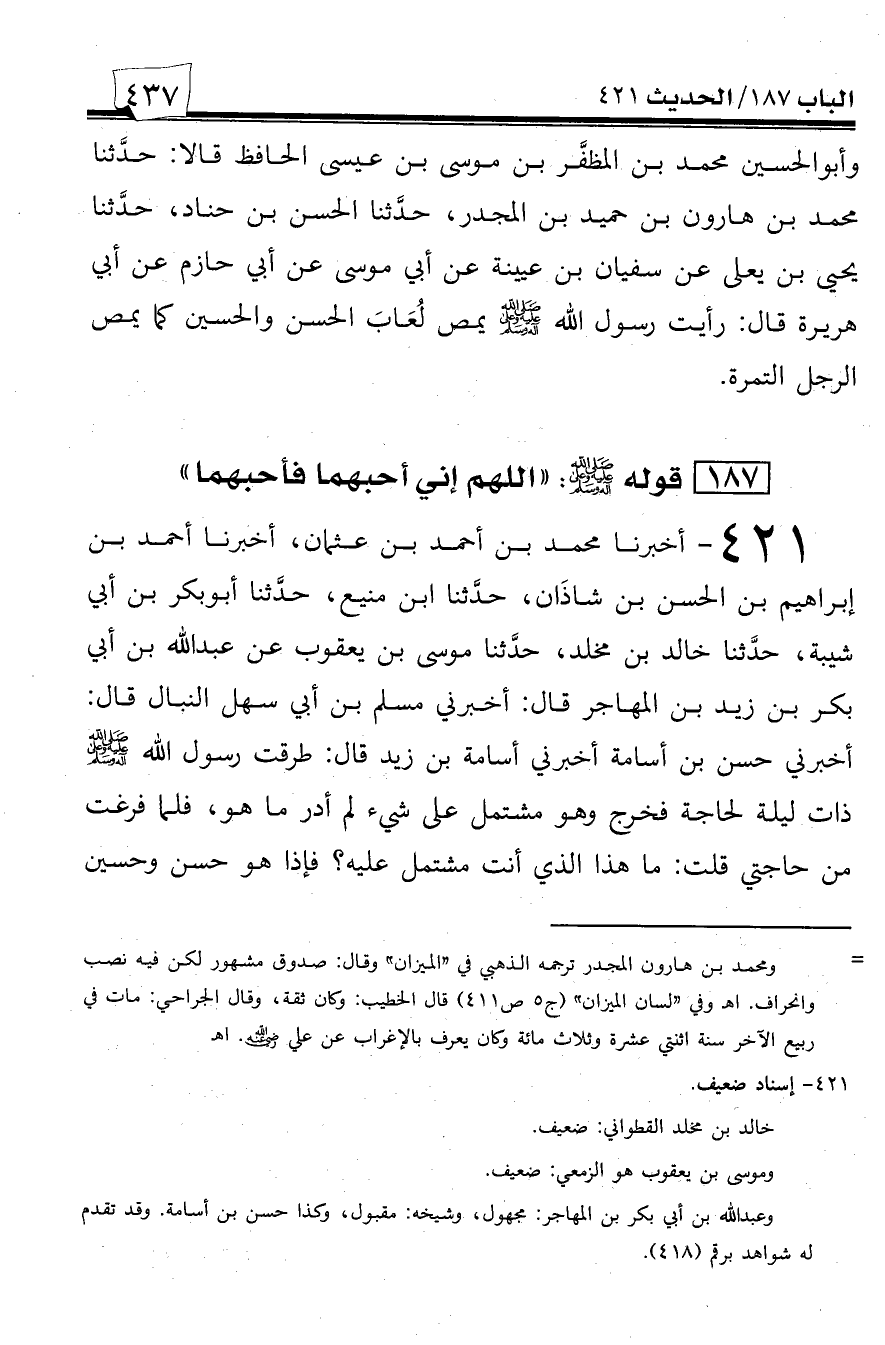 الباب ١٨٧/الحديث ٤٢١
٤٣٧
وأبوالحسين محمد بن المظفَّر بن موسى بن عيسى الحافظ قالا: حدَّثنا
محمد بن هارون بن حميد بن المجدر، حدَّثنا الحسن بن حناد، حدَّثنا
يحيى بن يعلى عن سفيان بن عيينة عن أبي موسى عن أبي حازم عن أبي
هريرة قال: رأيت رسول الله صلى الله عليه وآله وسلم يمص لُعَابَ الحسن والحسين كما يمص
الرجل التمرة.
١٨٧ قوله صلى الله عليه وآله وسلم: «اللهم إني أحبهما فأحبهما»
٤٢١- أخبرنا محمد بن أحمد بن عثمان، أخبرنا أحمد بن
إبراهيم بن الحسن بن شاذَان، حدَّثنا ابن منيع، حدَّثنا أبوبكر بن أبي
شيبة، حدَّثنا خالد بن مخلد، حدَّثنا موسى بن يعقوب عن عبدالله بن أبي
بكر بن زيد بن المهاجر قال: أخبرني مسلم بن أبي سهل النبال قال:
أخبرني حسن بن أسامة أخبرني أسامة بن زيد قال: طرقت رسول الله صلى الله عليه وآله وسلم
ذات ليلة لحاجة فخرج وهو مشتمل على شيء لم أدر ما هو، فلما فرغت
من حاجتي قلت: ما هذا الذي أنت مشتمل عليه؟ فإذا هو حسن وحسين
= ومحمد بن هارون المجدر ترجمه الذهبي في «الميزان» وقال: صدوق مشهور لكن فيه نصب
وانحراف. اهـ وفي «لسان الميزان» (ج٥ ص٤١١) قال الخطيب: وكان ثقة، وقال الجراحي: مات في
ربيع الآخر سنة اثنتي عشرة وثلاث مائة وكان يعرف بالإغراب عن علي رضي الله عنه. اهـ
٤٢١- إسناد ضعيف.
خالد بن مخلد القطواني: ضعيف.
وموسى بن يعقوب هو الزمعي: ضعيف.
وعبدالله بن أبي بكر بن المهاجر: مجهول، وشيخه: مقبول، وكذا حسن بن أسامة. وقد تقدم
له شواهد برقم (٤١٨).